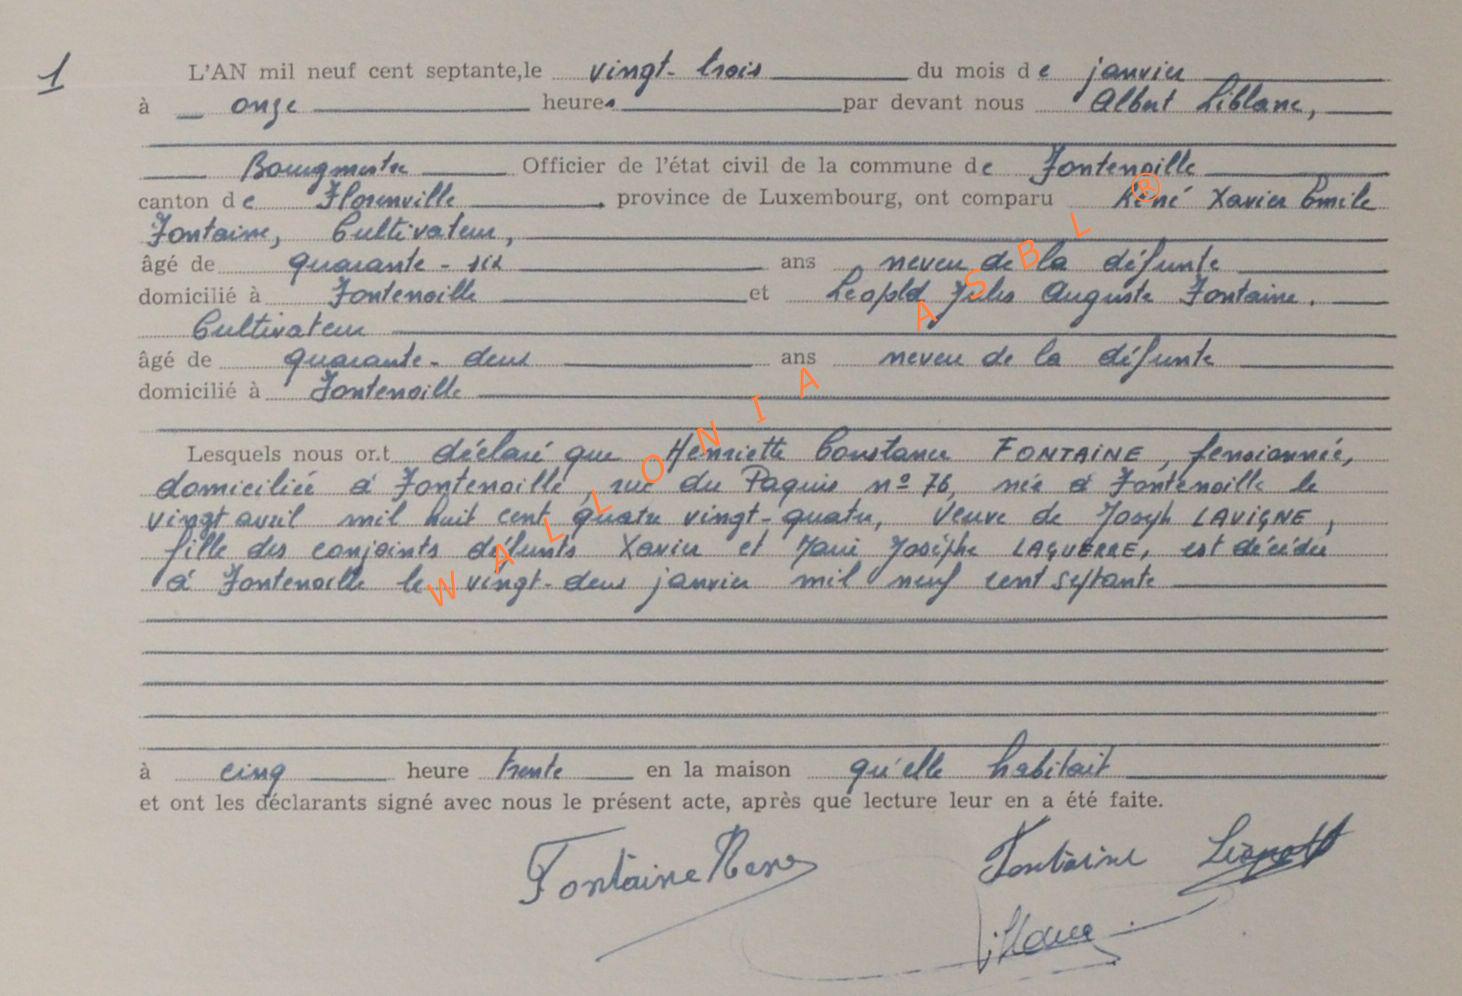 1
L'AN mil neuf cent septante, le vingt-trois du mois de janvier
à onze heures par devant nous Albert Liblanc,
Bourgmestre Officier de l'état civil de la commune de Fontenoille
canton de Florenville, province de Luxembourg, ont comparu René Xavier Emile
Fontaine, Cultivateur,
âgé de quarante-six ans neveu de la défunte
domicilié à Fontenoille et Léopold Jules Auguste Fontaine,
Cultivateur
âgé de quarante-deux ans neveu de la défunte
domicilié à Fontenoille
Lesquels nous ont déclaré que Henriette Constance FONTAINE, pensionnée,
domiciliée à Fontenoille, rue du Paquis nº 76, née à Fontenoille le
vingt avril mil huit cent quatre vingt-quatre, veuve de Joseph LAVIGNE,
fille des conjoints défunts Xavier et Marie Josèphe LAGUERRE, est décédée
à Fontenoille le vingt-deux janvier mil neuf cent septante
à cinq heure trente en la maison qu'elle habitait
et ont les déclarants signé avec nous le présent acte, après que lecture leur en a été faite.
Fontaine René Fontaine Léopold
Liblanc
WALLONIA ASBL ®